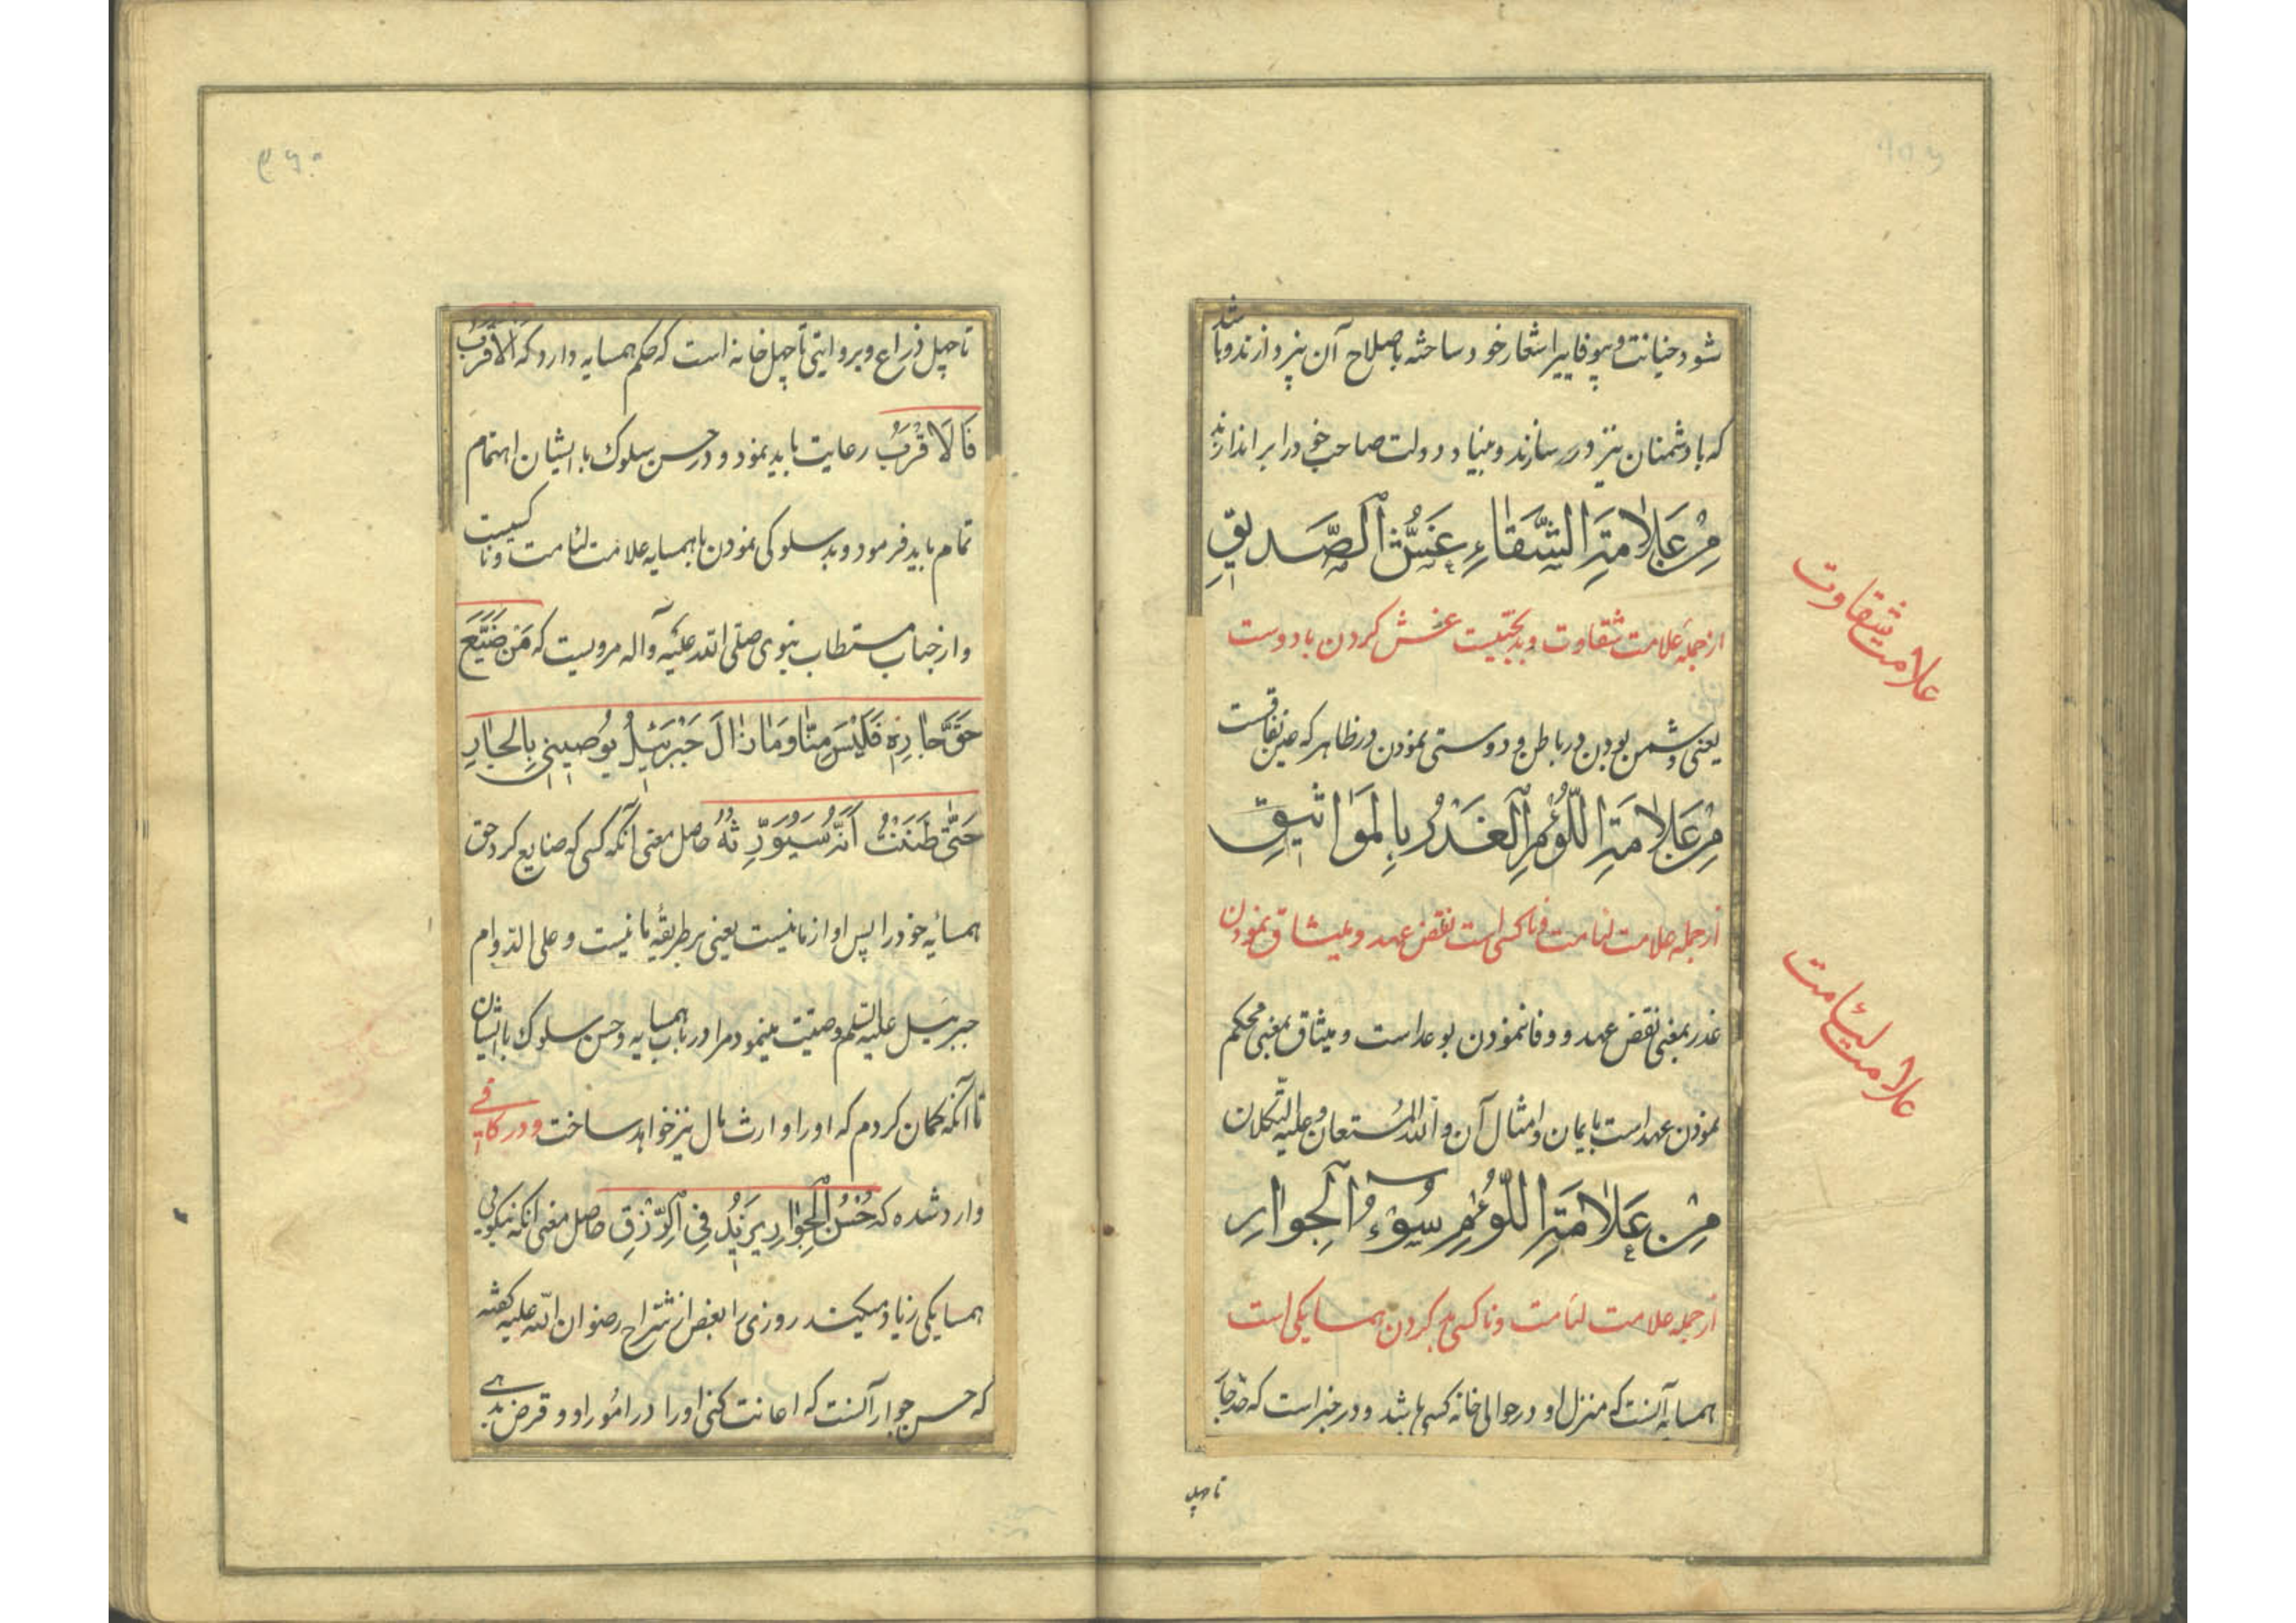 شود خیانت و بیوفاییرا شعار خود ساخته باصلاح آن نپردازند و باشد
که با دشمنان نیز در سازند و بنیاد دولت صاحب خود را براندازند
مِنْ عَلَامَةِ الشَّقَاءِ غَشُّ الصَّدِيقِ
از جمله علامت شقاوت و بدبختیست غش کردن با دوست
یعنی دشمن بودن در باطن و دوستی نمودن در ظاهر که عین نفاقست
مِنْ عَلَامَةِ اللُّؤْمِ الْغَدْرُ بِالْمَوَاثِيقِ
از جمله علامت لئامت و ناکسی است نقض عهد و میثاق نمودن
غدر بمعنی نقض عهد و وفا نمودن بوعد است و میثاق بمعنی محکم
نمودن عهد است بایمان و امثال آن و الله المستعان و علیه التکلان
مِنْ عَلَامَةِ اللُّؤْمِ سُوءُ الْجِوَارِ
از جمله علامت لئامت و ناکسی بد کردن همسایکی است
همسایه آنست که منزل او در حوالی خانه کسی باشد و در خبر است که حد جار
تا چهل
علامت شقاوت
علامت لئامت
تا چهل ذراع و بروایتی تا چهل خانه است که حکم همسایه دارد که الْاَقْرَبُ
فَالْاَقْرَبُ رعایت باید نمود و در حسن سلوک با ایشان اهتمام
تمام باید فرمود و بد سلوکی نمودن با همسایه علامت لئامت و ناکسیست
و از جناب مستطاب نبوی صلی الله علیه و آله مرویست که مَنْ ضَیَّعَ
حَقَّ جَارِهِ فَلَیْسَ مِنَّا وَمَا زَالَ جَبْرَئِیلُ یُوصِینِی بِالْجَارِ
حَتّٰی ظَنَنْتُ اَنَّهُ سَیُوَرِّثُهُ حاصل معنی آنکه کسی که ضایع کرد حق
همسایه خود را پس او از ما نیست یعنی بر طریقهٔ ما نیست و علی الدوام
جبرئیل علیه السلم وصیت مینمود مرا در باب همسایه و حسن سلوک با ایشان
تا آنکه کمان کردم که او را وارث مال نیز خواهد ساخت و در کافی
وارد شده که حُسْنُ الْجِوَارِ یَزِیدُ فِی الرِّزْقِ حاصل معنی آنکه نیکویی
همسایکی زیاد میکند روزی را بعض از شراح رضوان الله علیه کفته
که حسن جوار آنست که اعانت کنی او را در امور او و قرض بدهی